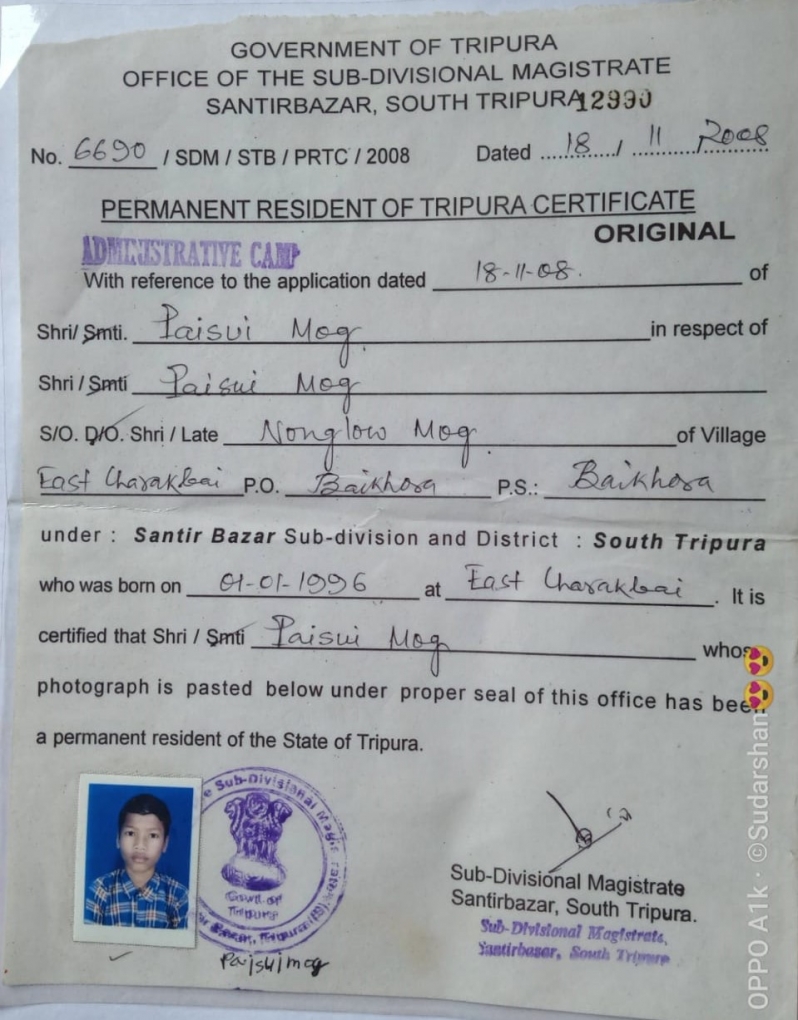 GOVERNMENT OF TRIPURA
OFFICE OF THE SUB-DIVISIONAL MAGISTRATE
SANTIRBAZAR, SOUTH TRIPURA 12990
No. 6690 / SDM / STB / PRTC / 2008 Dated 18 / 11 / 2008
PERMANENT RESIDENT OF TRIPURA CERTIFICATE
ORIGINAL
ADMINISTRATIVE CAMP
With reference to the application dated 18-11-08. of
Shri/ Smti. Paisui Mog in respect of
Shri / Smti Paisui Mog
S/O. D/O. Shri / Late Nonglow Mog of Village
East Charakbai P.O. Baikhora P.S.: Baikhora
under : Santir Bazar Sub-division and District : South Tripura
who was born on 01-01-1996 at East Charakbai. It is
certified that Shri / Smti Paisui Mog whos
photograph is pasted below under proper seal of this office has been
a permanent resident of the State of Tripura.
Sub-Divisional Magi
Govt. of
Tripura
Bazar, Tripura
Paisui mog
Sub-Divisional Magistrate
Santirbazar, South Tripura.
Sub-Divisional Magistrate,
Santirbazar, South Tripura
OPPO A1k · ©Sudarshan😍😍